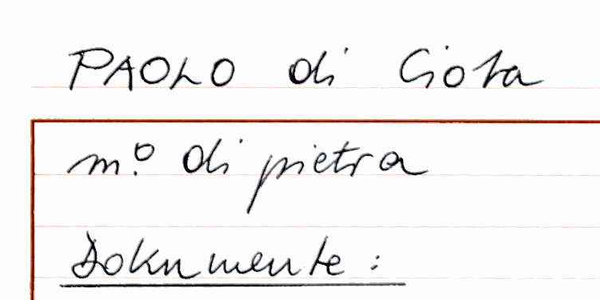 PAOLO di Giota
m.º di pietra
Dokumente :